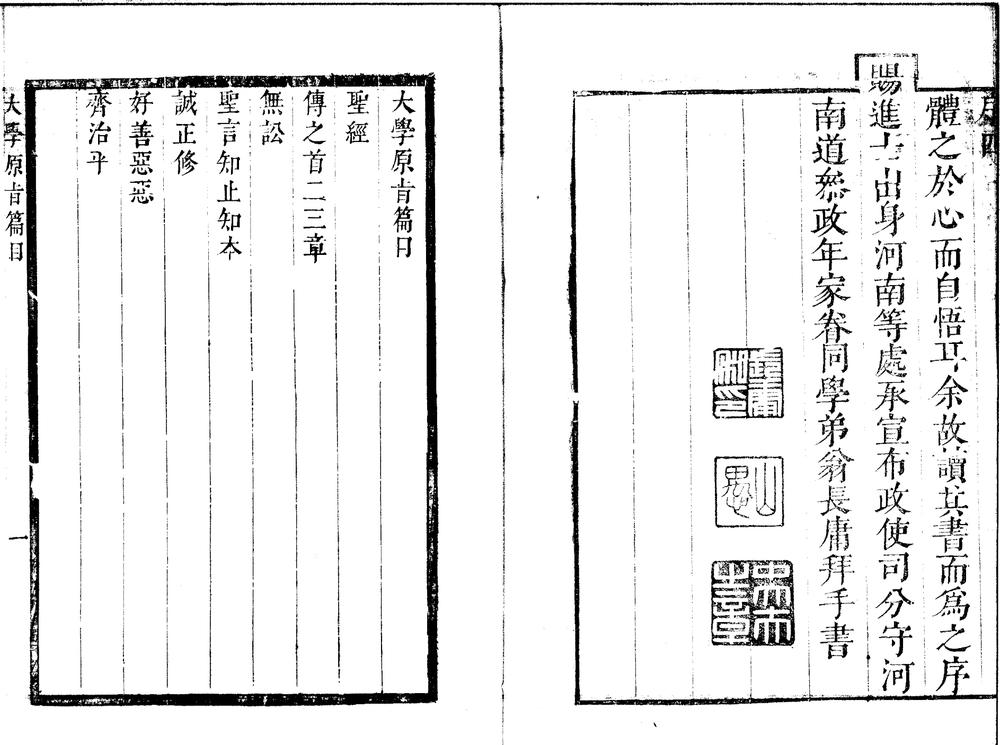 體之於心而自悟耳余故讀其書而爲之序
賜進士出身河南等處承宣布政使司分守河
南道叅政年家眷同學弟翁長庸拜手書
山愚
大學原旨篇目
聖經
傳之首二三章
無訟
聖言知止知本
誠正修
好善惡惡
齊治平
大學原旨篇目
一